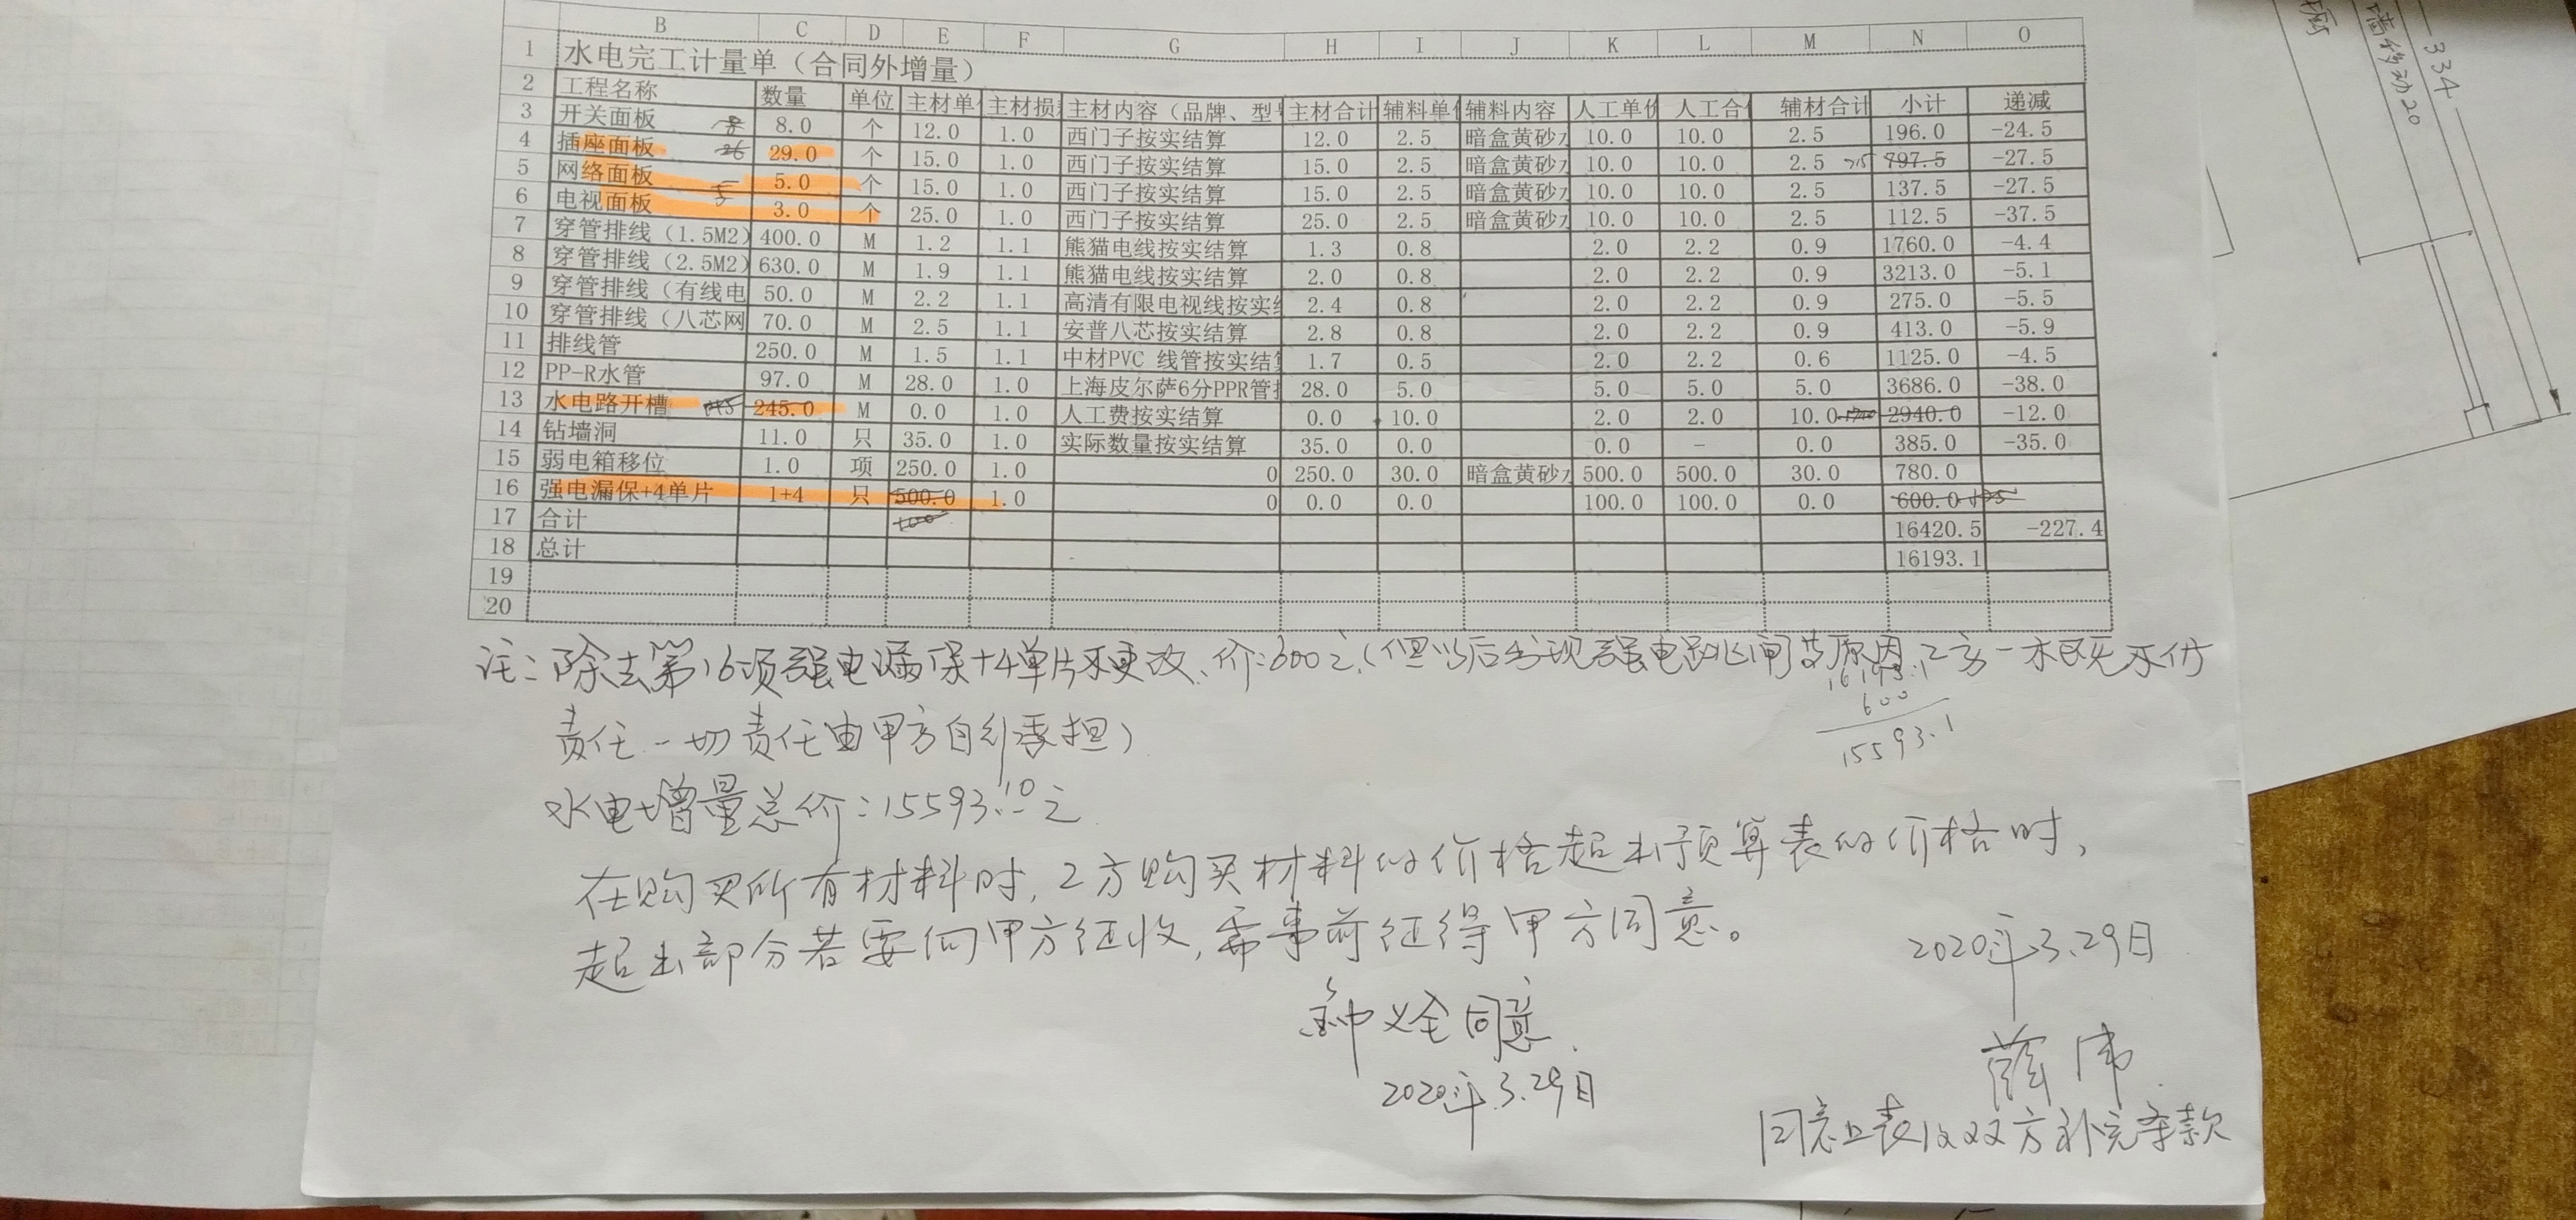 B C D E F G H I J K L M N O
1 水电完工计量单（合同外增量）
2 工程名称 数量 单位 主材单 主材损 主材内容（品牌、型 主材合计 辅料单 辅料内容 人工单价 人工合 辅材合计 小计 递减
3 开关面板 8 8.0 个 12.0 1.0 西门子按实结算 12.0 2.5 暗盒黄砂 10.0 10.0 2.5 196.0 -24.5
4 插座面板 26 29.0 个 15.0 1.0 西门子按实结算 15.0 2.5 暗盒黄砂 10.0 10.0 2.5 715 797.5 -27.5
5 网络面板 5.0 个 15.0 1.0 西门子按实结算 15.0 2.5 暗盒黄砂 10.0 10.0 2.5 137.5 -27.5
6 电视面板 3.0 个 25.0 1.0 西门子按实结算 25.0 2.5 暗盒黄砂 10.0 10.0 2.5 112.5 -37.5
7 穿管排线（1.5M2） 400.0 M 1.2 1.1 熊猫电线按实结算 1.3 0.8 2.0 2.2 0.9 1760.0 -4.4
8 穿管排线（2.5M2） 630.0 M 1.9 1.1 熊猫电线按实结算 2.0 0.8 2.0 2.2 0.9 3213.0 -5.1
9 穿管排线（有线电 50.0 M 2.2 1.1 高清有限电视线按实 2.4 0.8 2.0 2.2 0.9 275.0 -5.5
10 穿管排线（八芯网 70.0 M 2.5 1.1 安普八芯按实结算 2.8 0.8 2.0 2.2 0.9 413.0 -5.9
11 排线管 250.0 M 1.5 1.1 中材PVC 线管按实结 1.7 0.5 2.0 2.2 0.6 1125.0 -4.5
12 PP-R水管 97.0 M 28.0 1.0 上海皮尔萨6分PPR管 28.0 5.0 5.0 5.0 5.0 3686.0 -38.0
13 水电路开槽 245.0 M 0.0 1.0 人工费按实结算 0.0 10.0 2.0 2.0 10.0 2940.0 -12.0
14 钻墙洞 11.0 只 35.0 1.0 实际数量按实结算 35.0 0.0 0.0 - 0.0 385.0 -35.0
15 弱电箱移位 1.0 项 250.0 1.0 0 250.0 30.0 暗盒黄砂 500.0 500.0 30.0 780.0
16 强电漏保+4单片 1+4 只 500.0 1.0 0 0.0 0.0 100.0 100.0 0.0 600.0
17 合计 100 16420.5 -227.4
18 总计 16193.1
19
20
注：除去第16项强电漏保+4单片不更改、价：600元（但以后出现强电跳闸等原因，乙方一概不付
责任.一切责任由甲方自行承担）
16193.1
600
15593.1
水电增量总价：15593.10元
在购买所有材料时，乙方购买材料的价格超出预算表的价格时，
超出部分若要向甲方征收，需事前征得甲方同意。
2020年3.29日
钟义全同意
2020年3.29日
薛伟
同意上表以及双方补充条款
334
墙移动20